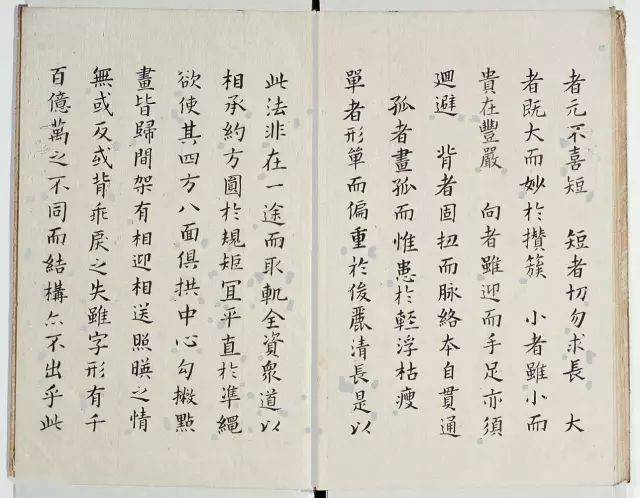 者元不喜短　短者切勿求長　大
者既大而妙於攢簇　小者雖小而
貴在豐嚴　向者雖迎而手足亦須
廻避　背者固扭而脉絡本自貫通
孤者畫孤而惟患於輕浮枯瘦
單者形單而偏重於俊麗清長是以
此法非在一途而取軌全資衆道以
相承約方圓於規矩冝平直於準繩
欲使其四方八面俱拱中心勾撇點
畫皆歸間架有相迎相送照暎之情
無或反或背乖戾之失雖字形有千
百億萬之不同而結構亦不出乎此